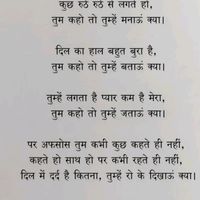 कुछ रुठे रुठे से लगते हो,
तुम कहो तो तुम्हें मनाऊं क्या।
दिल का हाल बहुत बुरा है,
तुम कहो तो तुम्हें बताऊं क्या।
तुम्हें लगता है प्यार कम है मेरा,
तुम कहो तो तुम्हें जताऊं क्या।
पर अफसोस तुम कभी कुछ कहते ही नहीं,
कहते हो साथ हो पर कभी रहते ही नहीं,
दिल में दर्द है कितना, तुम्हें रो के दिखाऊं क्या।